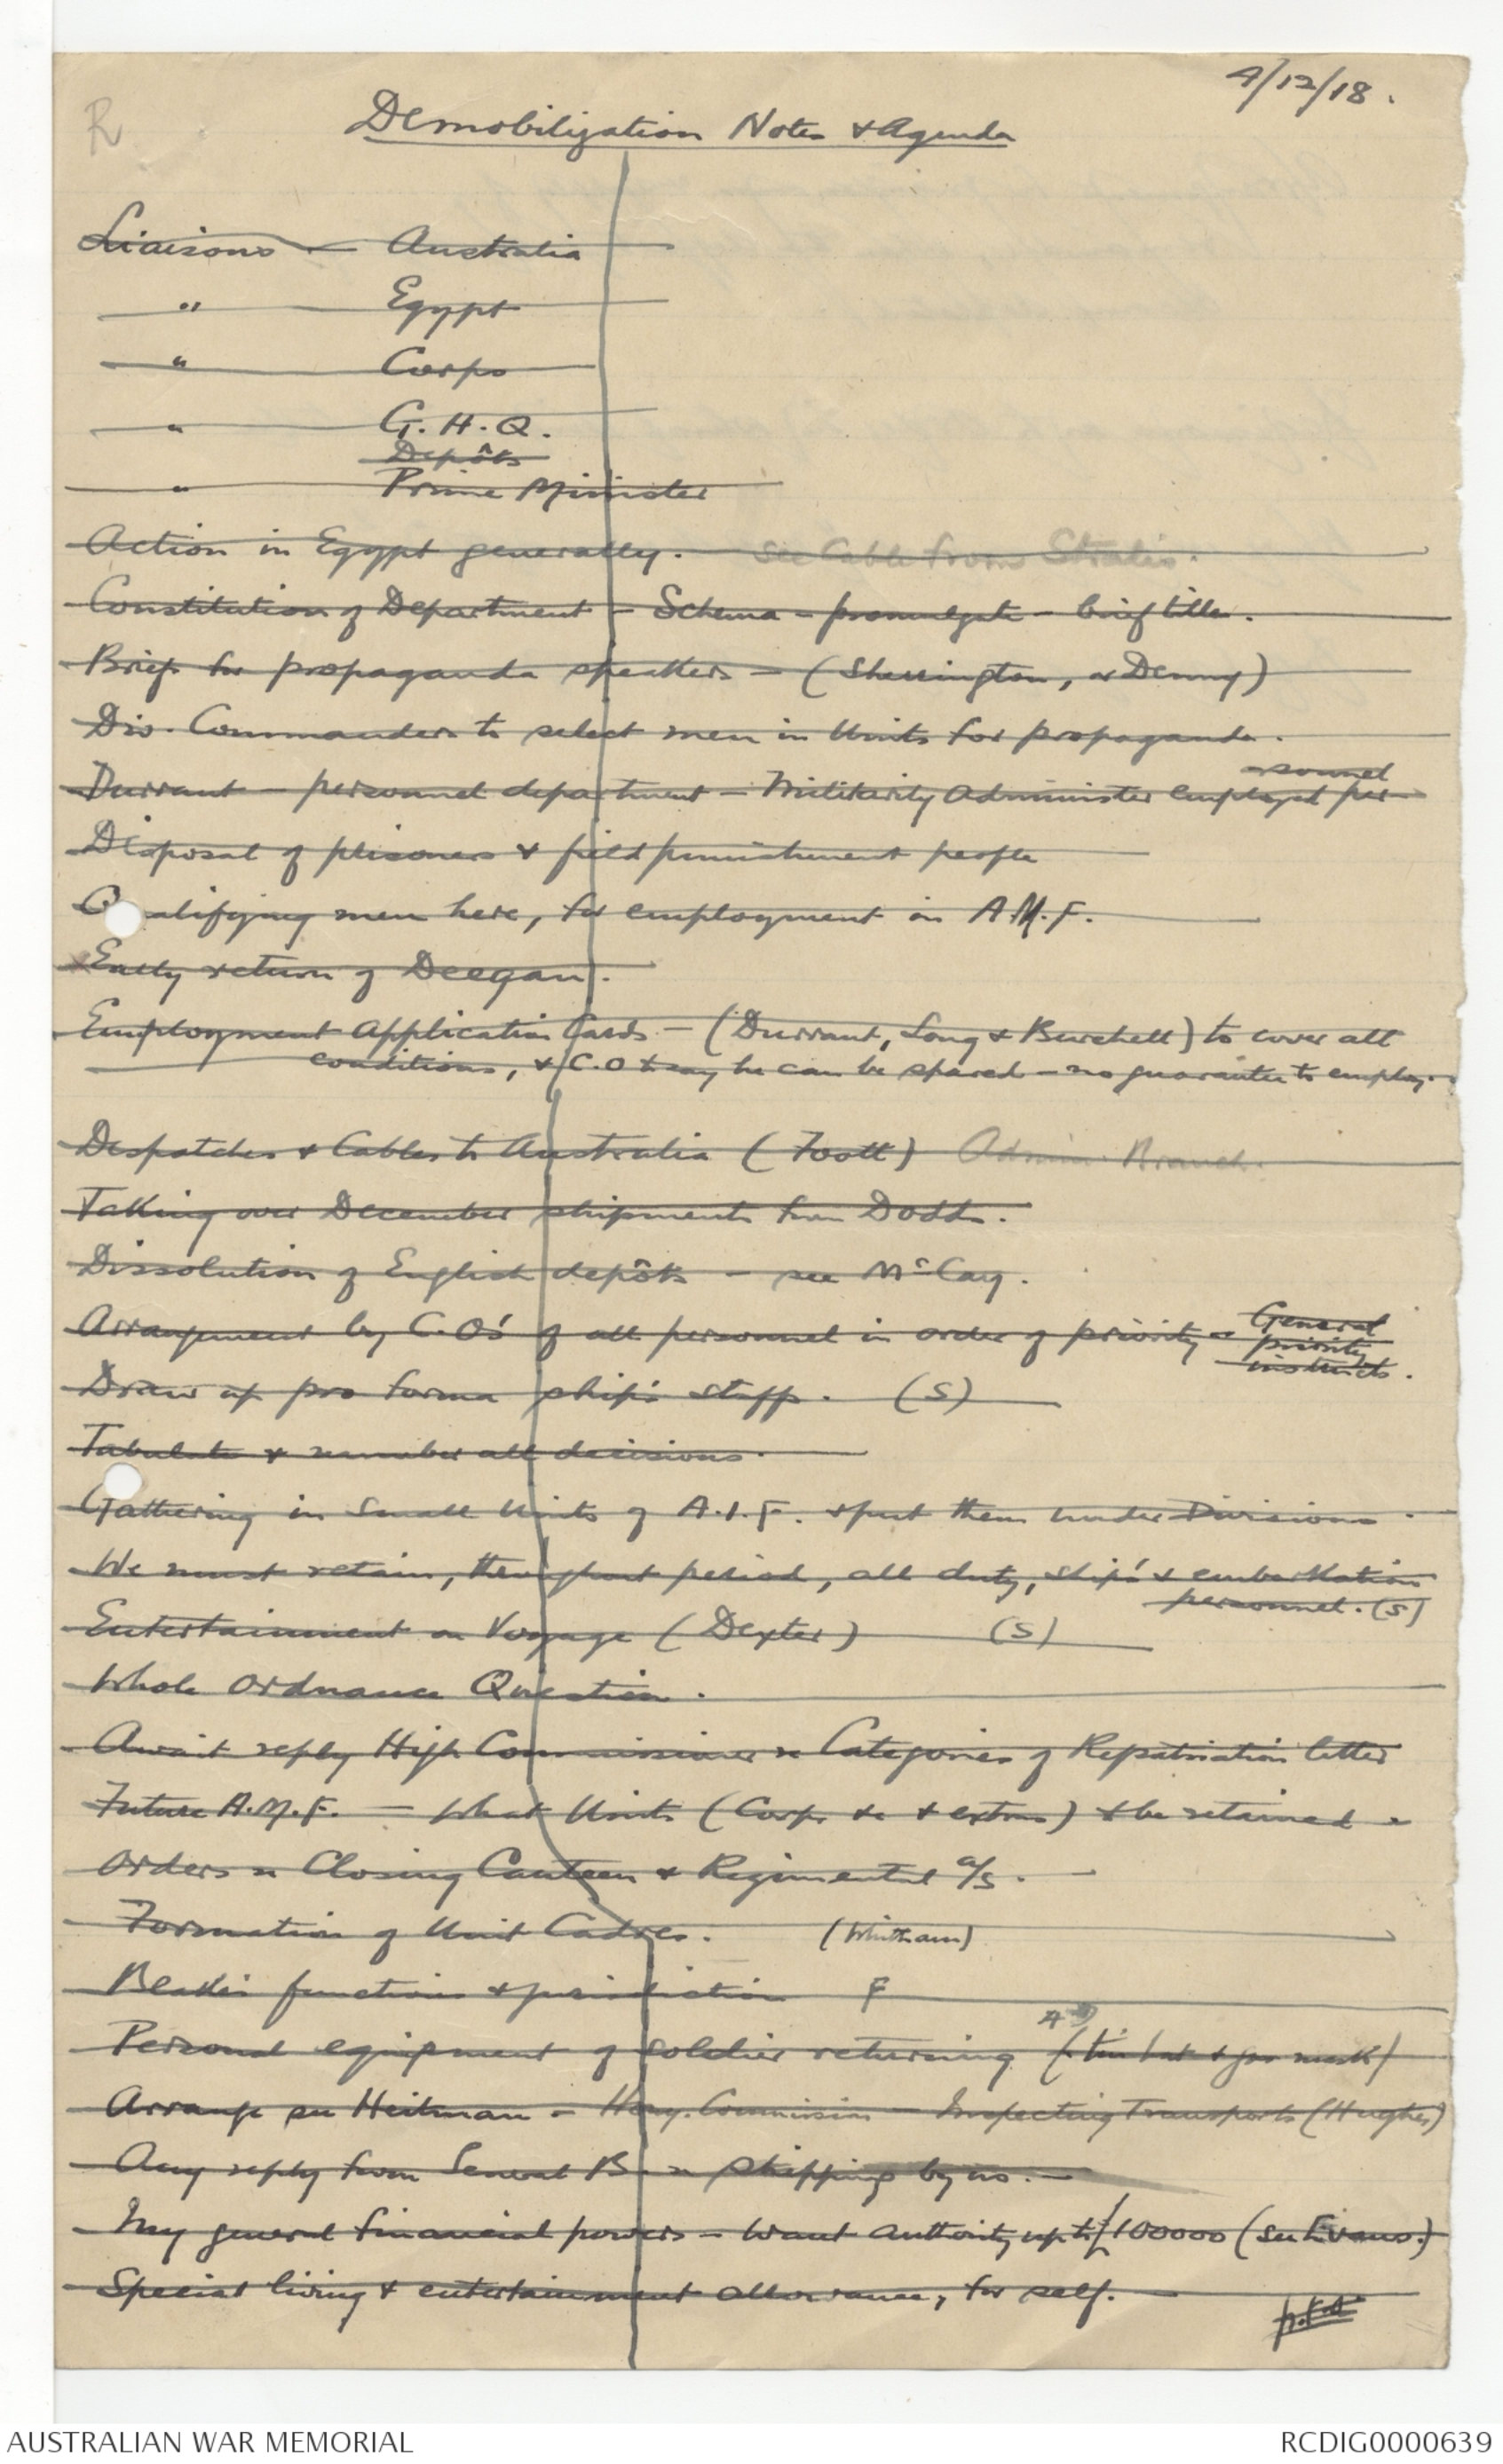 4/12/18.
R
Demobilization Notes & Agenda
Liaisons - Australia
" Egypt
" Corps
" G.H.Q.
Depôts
" Prime Minister
Action in Egypt generally. See Cable from Stralis.
Constitution of Department - Schema - promulgate - brief titles.
Briefs for propaganda speakers - (Sherrington, or Denny)
Div. Commanders to select men in Units for propaganda.
Durrant - personnel department - Militarily Administer employed per-
sonnel
Disposal of prisoners & field punishment people
Qualifying men here, for employment in A.M.F.
Early return of Deegan.
Employment Application Cards - (Durrant, Long & Burchell) to cover all
conditions, & C.O to say he can be spared - no guarantee to employ.
Despatches & Cables to Australia (Foott) Admin. Branch.
Taking over December shipments from Dodds.
Dissolution of English depôts - see McCay.
Arrangement by C.O's of all personnel in order of priority - General
priority
instructs.
Draw up pro forma ship's staff. (S)
Tabulate & number all decisions.
Gathering in small Units of A.I.F. & put them under Divisions.
We must retain, throughout period, all duty, ship's & embarkation
personnel. (S)
Entertainment on Voyage (Dexter) (S)
Whole Ordnance Question.
Await reply High Commissioner re Categories of Repatriation letter
Future A.M.F. - What Units (Corps &c & extras) to be retained
Orders re Closing Canteen & Regimental a/s.
Formation of Unit Cadres. (Whitham)
functions & jurisdiction F
Personal equipment of soldier returning (tin hat & gas mask)
Arrange see Heitman - Hony. Commission - Inspecting Transports (Hughes)
Any reply from General B. re shipping by us.
My general financial powers - Want authority up to £100000 (see Evans.)
Special living & entertainment allowance, for self.
p.t.o
AUSTRALIAN WAR MEMORIAL
RCDIG0000639